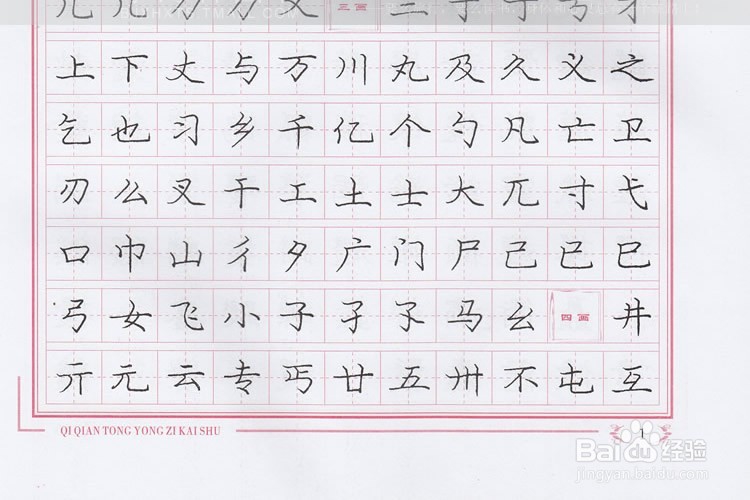 三画 三
上 下 丈 与 万 川 丸 及 久 义 之
乞 也 习 乡 千 亿 个 勺 凡 亡 卫
刃 么 叉 干 工 土 士 大 兀 寸 弋
口 巾 山 彳 夕 广 门 尸 己 已 巳
弓 女 飞 小 子 孑 孓 马 幺 四画 井
亓 元 云 专 丐 廿 五 卅 不 屯 互
QI QIAN TONG YONG ZI KAI SHU 1
Baidu经验
jingyan.baidu.com